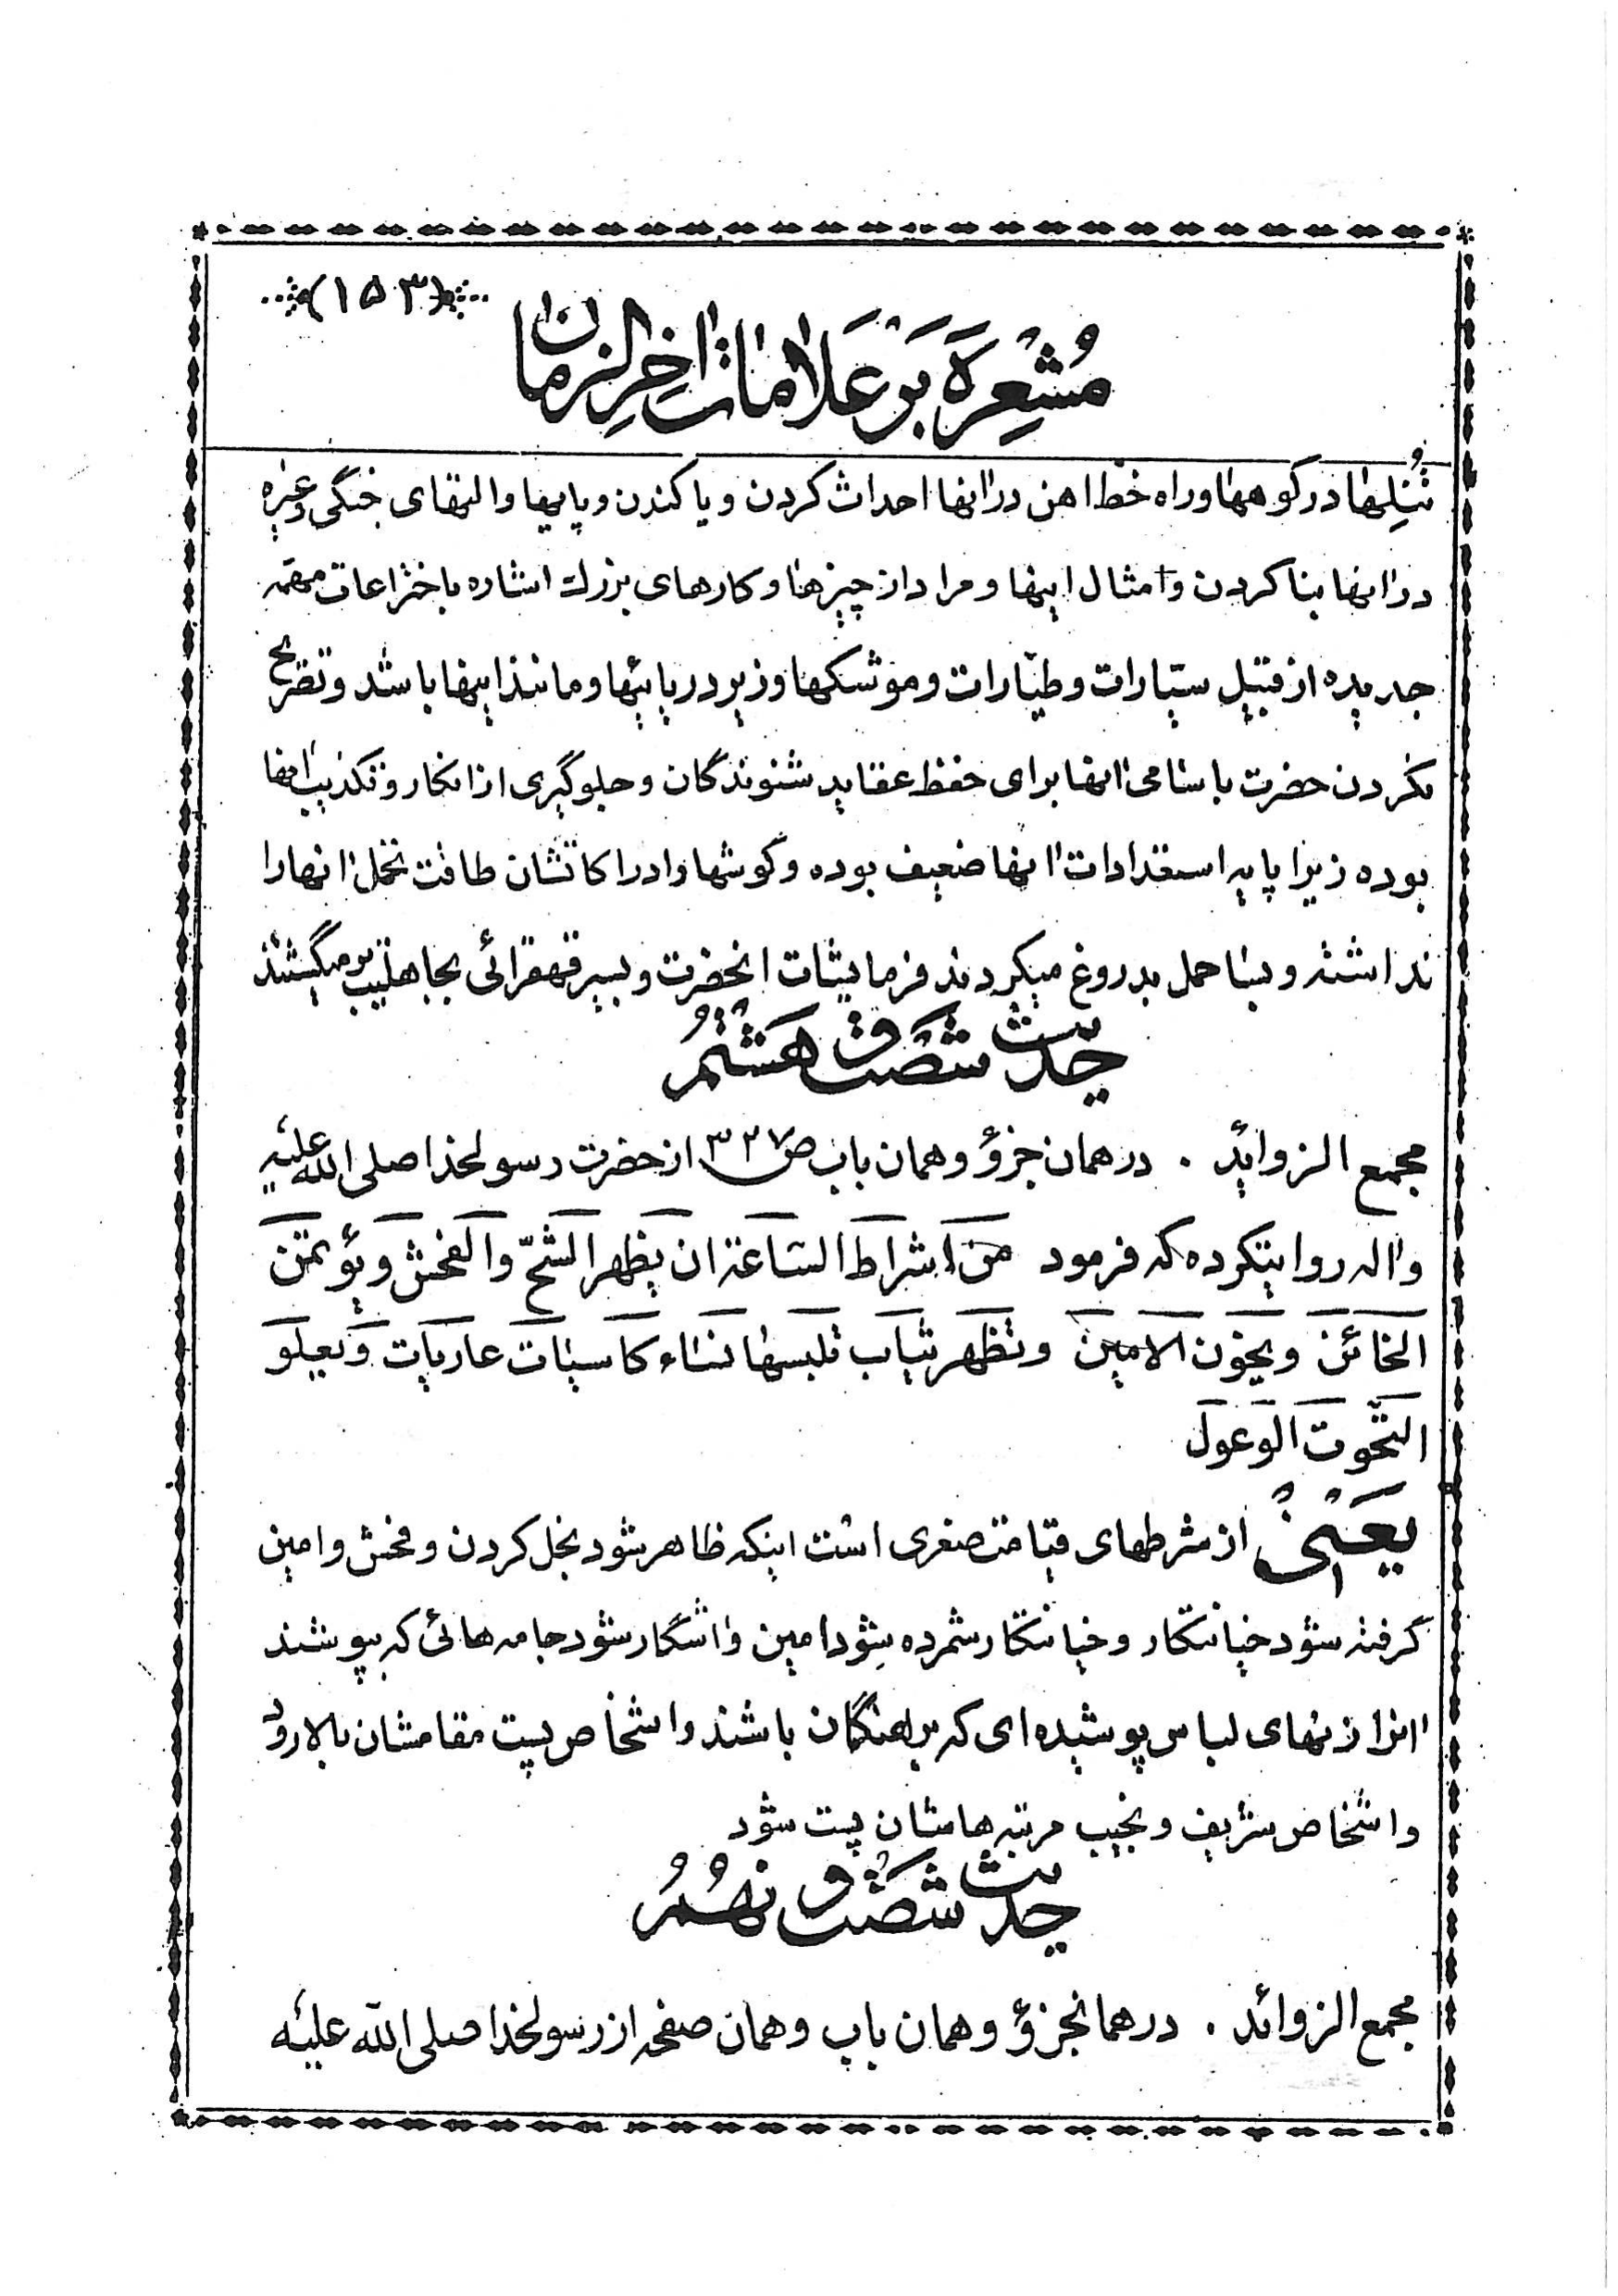 (١٥٣)
مُشْعِرَه بَر عَلاماتِ آخِرالزمان
تُنِلها در کوهها و راه خط اهن در انها احداث کردن و یا کندن و پایها و التهای جنگی و غیره
در انها بنا کردن و امثال اینها و مراد از چیزها و کارهای بزرک اشاره باختراعات مهمه
جدیده از قبیل سیارات و طیارات و موشکها و زیر دریائیها و مانند اینها باشد و تصریح
نکردن حضرت باسامی انها برای حفظ عقاید شنوندگان و جلوگیری از انکار و تکذیب انها
بوده زیرا پایه استعدادات انها ضعیف بوده و گوشها و ادراکاتشان طاقت تحمل انها را
نداشته و بسا حمل بدروغ میکردند فرمایشات انحضرت و بسیر قهقرائی بجاهلیت بر میگشتند
حدیث شصت و هشتم
مجمع الزواید . در همان جزؤ و همان باب ص ٣٢٧ از حضرت رسولخدا صلی الله علیه
واله روایتکرده که فرمود من اشراط الساعة ان یظهر الشحّ والفحش ویؤتمن
الخائن ویخون الامین وتظهر ثیاب تلبسها نساء کاسیات عاریات ویعلو
التحوت الوعول
یَعْنی از شرطهای قیامت صغری است اینکه ظاهر شود بخل کردن و فحش و امین
گرفته شود خیانتکار و خیانتکار شمرده شود امین و اشگار شود جامه هائی که بپوشند
انرا زنهای لباس پوشیده ای که برهنگان باشند و اشخاص پست مقامشان بالا رود
و اشخاص شریف و نجیب مرتبه هاشان پست شود
حدیث شصت و نهم
مجمع الزوائد . در همانجزؤ و همان باب و همان صفحه از رسولخدا صلی الله علیه